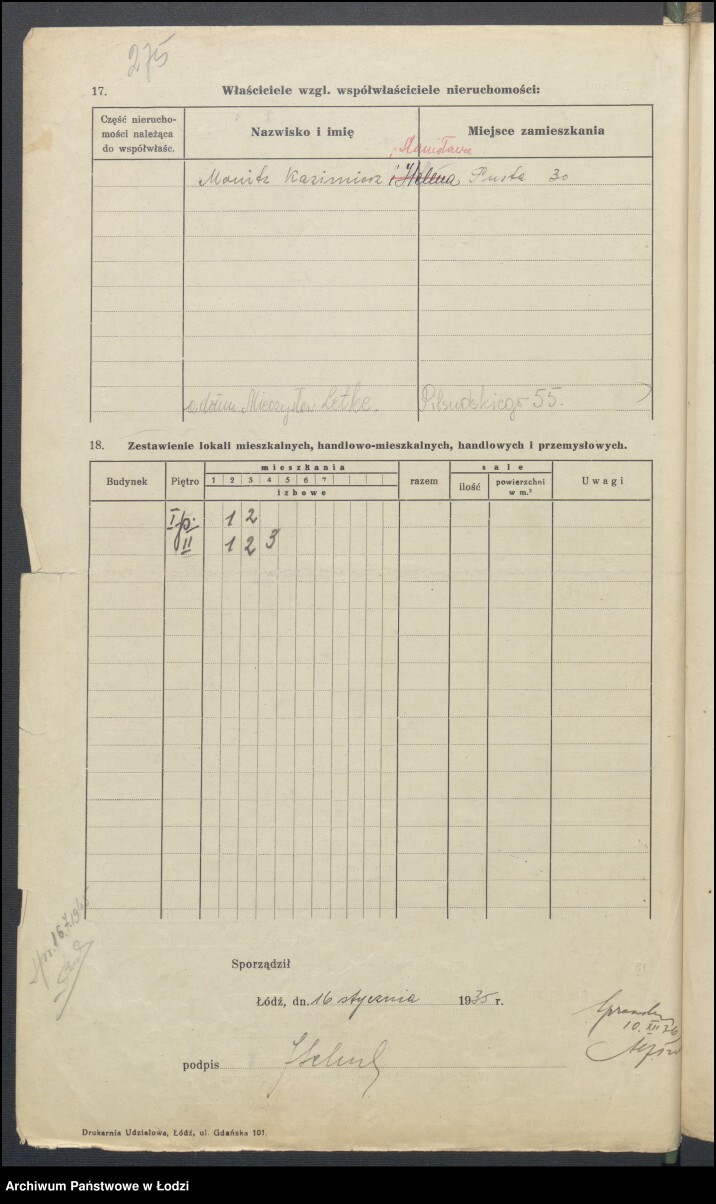 275
17. Właściciele wzgl. współwłaściciele nieruchomości:
Część nierucho-
mości należąca
do współwłaśc.
Nazwisko i imię
Miejsce zamieszkania
Stanisława
Kazimierz i Helena, Pusta 30
Mieczysław Letke. Piłsudskiego 55.
18. Zestawienie lokali mieszkalnych, handlowo-mieszkalnych, handlowych i przemysłowych.
Budynek
Piętro
mieszkania
1 2 3 4 5 6 7
izbowe
razem
sale
ilość
powierzchni
w m.²
Uwagi
I p. 1 2
II 1 2 3
16.7.1945
Sporządził
Łódź, dn. 16 stycznia 1935 r.
10. XII 36
podpis
Drukarnia Udziałowa, Łódź, ul. Gdańska 101.
Archiwum Państwowe w Łodzi